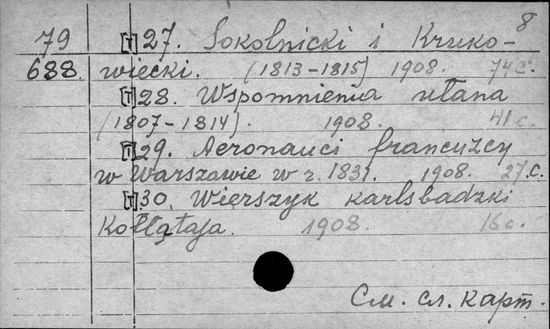 8
79 [T] 27. Sokolnicki i Kruko-
688. wiecki. (1813-1815) 1908. 74 с.
[T] 28. Wspomnienia ułana
(1807-1814). 1908. 41 с.
[T] 29. Aeronauci francuzcy
w Warszawie w r. 1831. 1908. 27 с.
[T] 30. Wierszyk karlsbadzki
Kołłątaja. 1908. 16 с.
См. сл. карт.